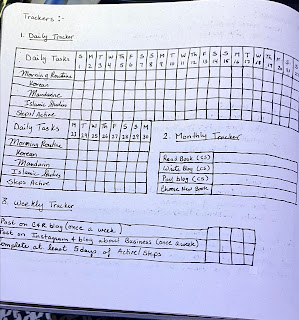 Trackers :-
1. Daily Tracker
Daily Tasks S M T W Th F S S M T W Th F S S M T W Th F S
1 2 3 4 5 6 7 8 9 10 11 12 13 14 15 16 17 18 19 20 21
Morning Routine
Korean
Mandarin
Islamic Studies
Steps Active
Daily Tasks M T W Th F S S M
23 24 25 26 27 28 29 30
Morning Routine
Korean
Mandarin
Islamic Studies
Steps Active
2. Monthly Tracker
Read Book
Write Blog
Post blog
Choose New Book
3. Weekly Tracker
Post on C&R blog (once a week)
Post on Instagram & blog about Business (once a week)
Complete at least 5 days of Active/Steps